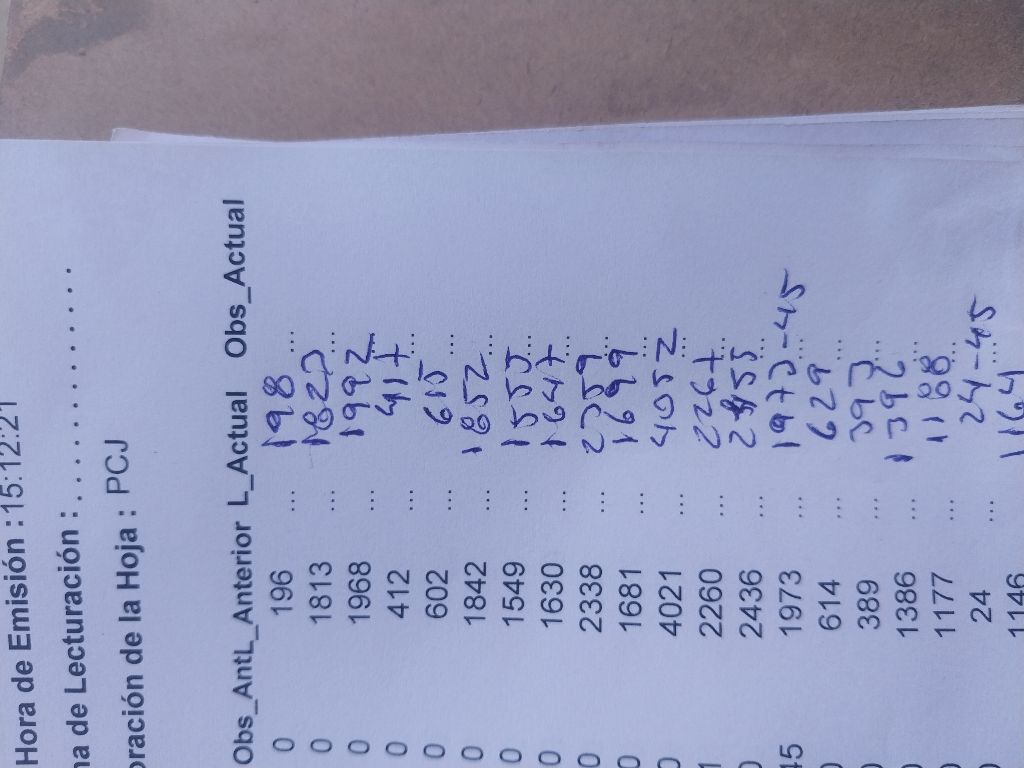 Hora de Emisión :15:12:21
na de Lecturación : . . . . . . . . . . . . . . .
oración de la Hoja : PCJ
Obs_AntL_Anterior L_Actual Obs_Actual
0 196 ... 198 ...
0 1813 ... 1823 ...
0 1968 ... 1992 ...
0 412 ... 417 ...
0 602 ... 615 ...
0 1842 ... 1852 ...
0 1549 ... 1553 ...
0 1630 ... 1647 ...
0 2338 ... 2359 ...
0 1681 ... 1699 ...
0 4021 ... 4052 ...
1 2260 ... 2267 ...
0 2436 ... 2455 ...
45 1973 ... 1973-45 ...
0 614 ... 629 ...
0 389 ... 393 ...
0 1386 ... 1392 ...
0 1177 ... 1188 ...
0 24 ... 24-45
1146 1164